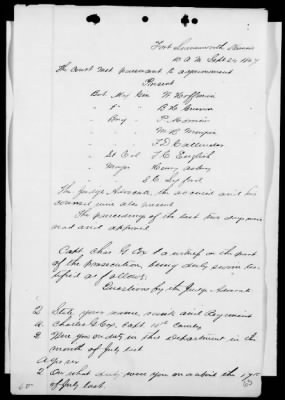 Fort Leavenworth Kansas
10 A M Sept 24 1867
The Court met pursuant to adjournment
Present
Bvt Maj Gen W Hoffman
" " B H
" Brig " P. Morrison
" " M R Morgan
" " F D Callender
" Lt Col T C English
" Major Henry Asbury
" " S C Lyford
The Judge Advocate, the accused and his
counsel were also present
The proceedings of the last two days were
read and approved
Capt. Chas G Cox a witness on the part
of the prosecution, being duly sworn tes-
tified as follows.
Questions by the Judge Advocate
Q State your name, rank and Regiment
A. Charles G Cox, Capt 10th Cavalry
Q Were you on duty in this Department in the
month of July last
A. Yes sir
Q On what duty were you on about the 17th
of July last.